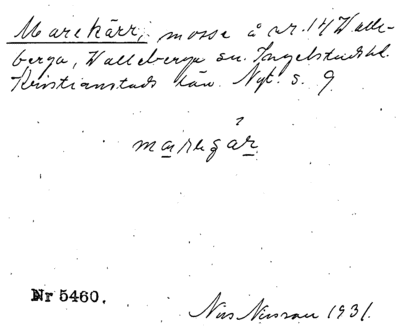 Marekärr, mosse å nr. 14 Walle-
berga, Walleberga sn. Ingelstads hd.
Kristianstads län. Nyt. s. 9
maregár
Nr 5460.
Nils Nilsson 1931.